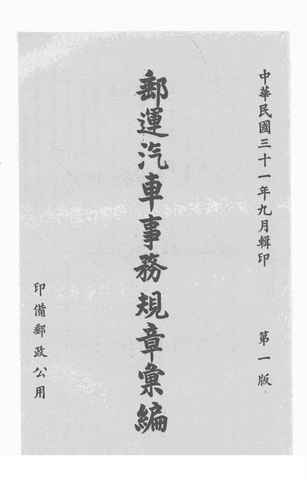 中華民國三十一年九月輯印　第一版
郵運汽車事務規章彙編
印備郵政公用